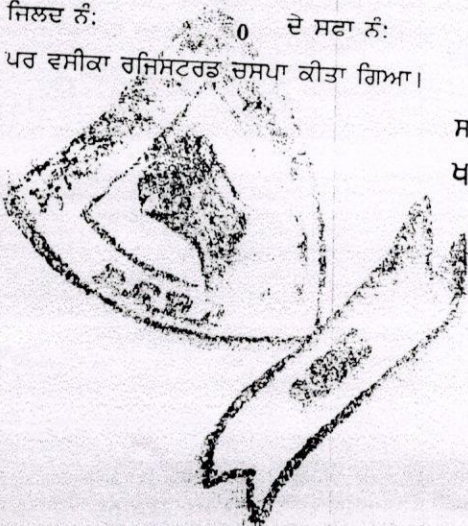 ਜਿਲਦ ਨੰ: 0 ਦੇ ਸਫਾ ਨੰ:
ਪਰ ਵਸੀਕਾ ਰਜਿਸਟਰਡ ਚਸਪਾ ਕੀਤਾ ਗਿਆ।
ਸ
ਖ